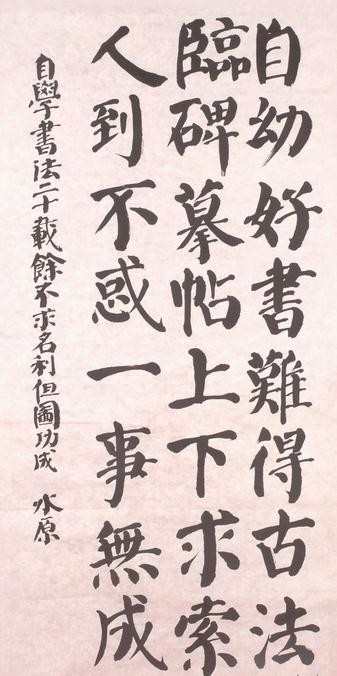 自幼好書難得古法
臨碑摹帖上下求索
人到不惑一事無成
自學書法二十載餘不求名利但圖功成 水原